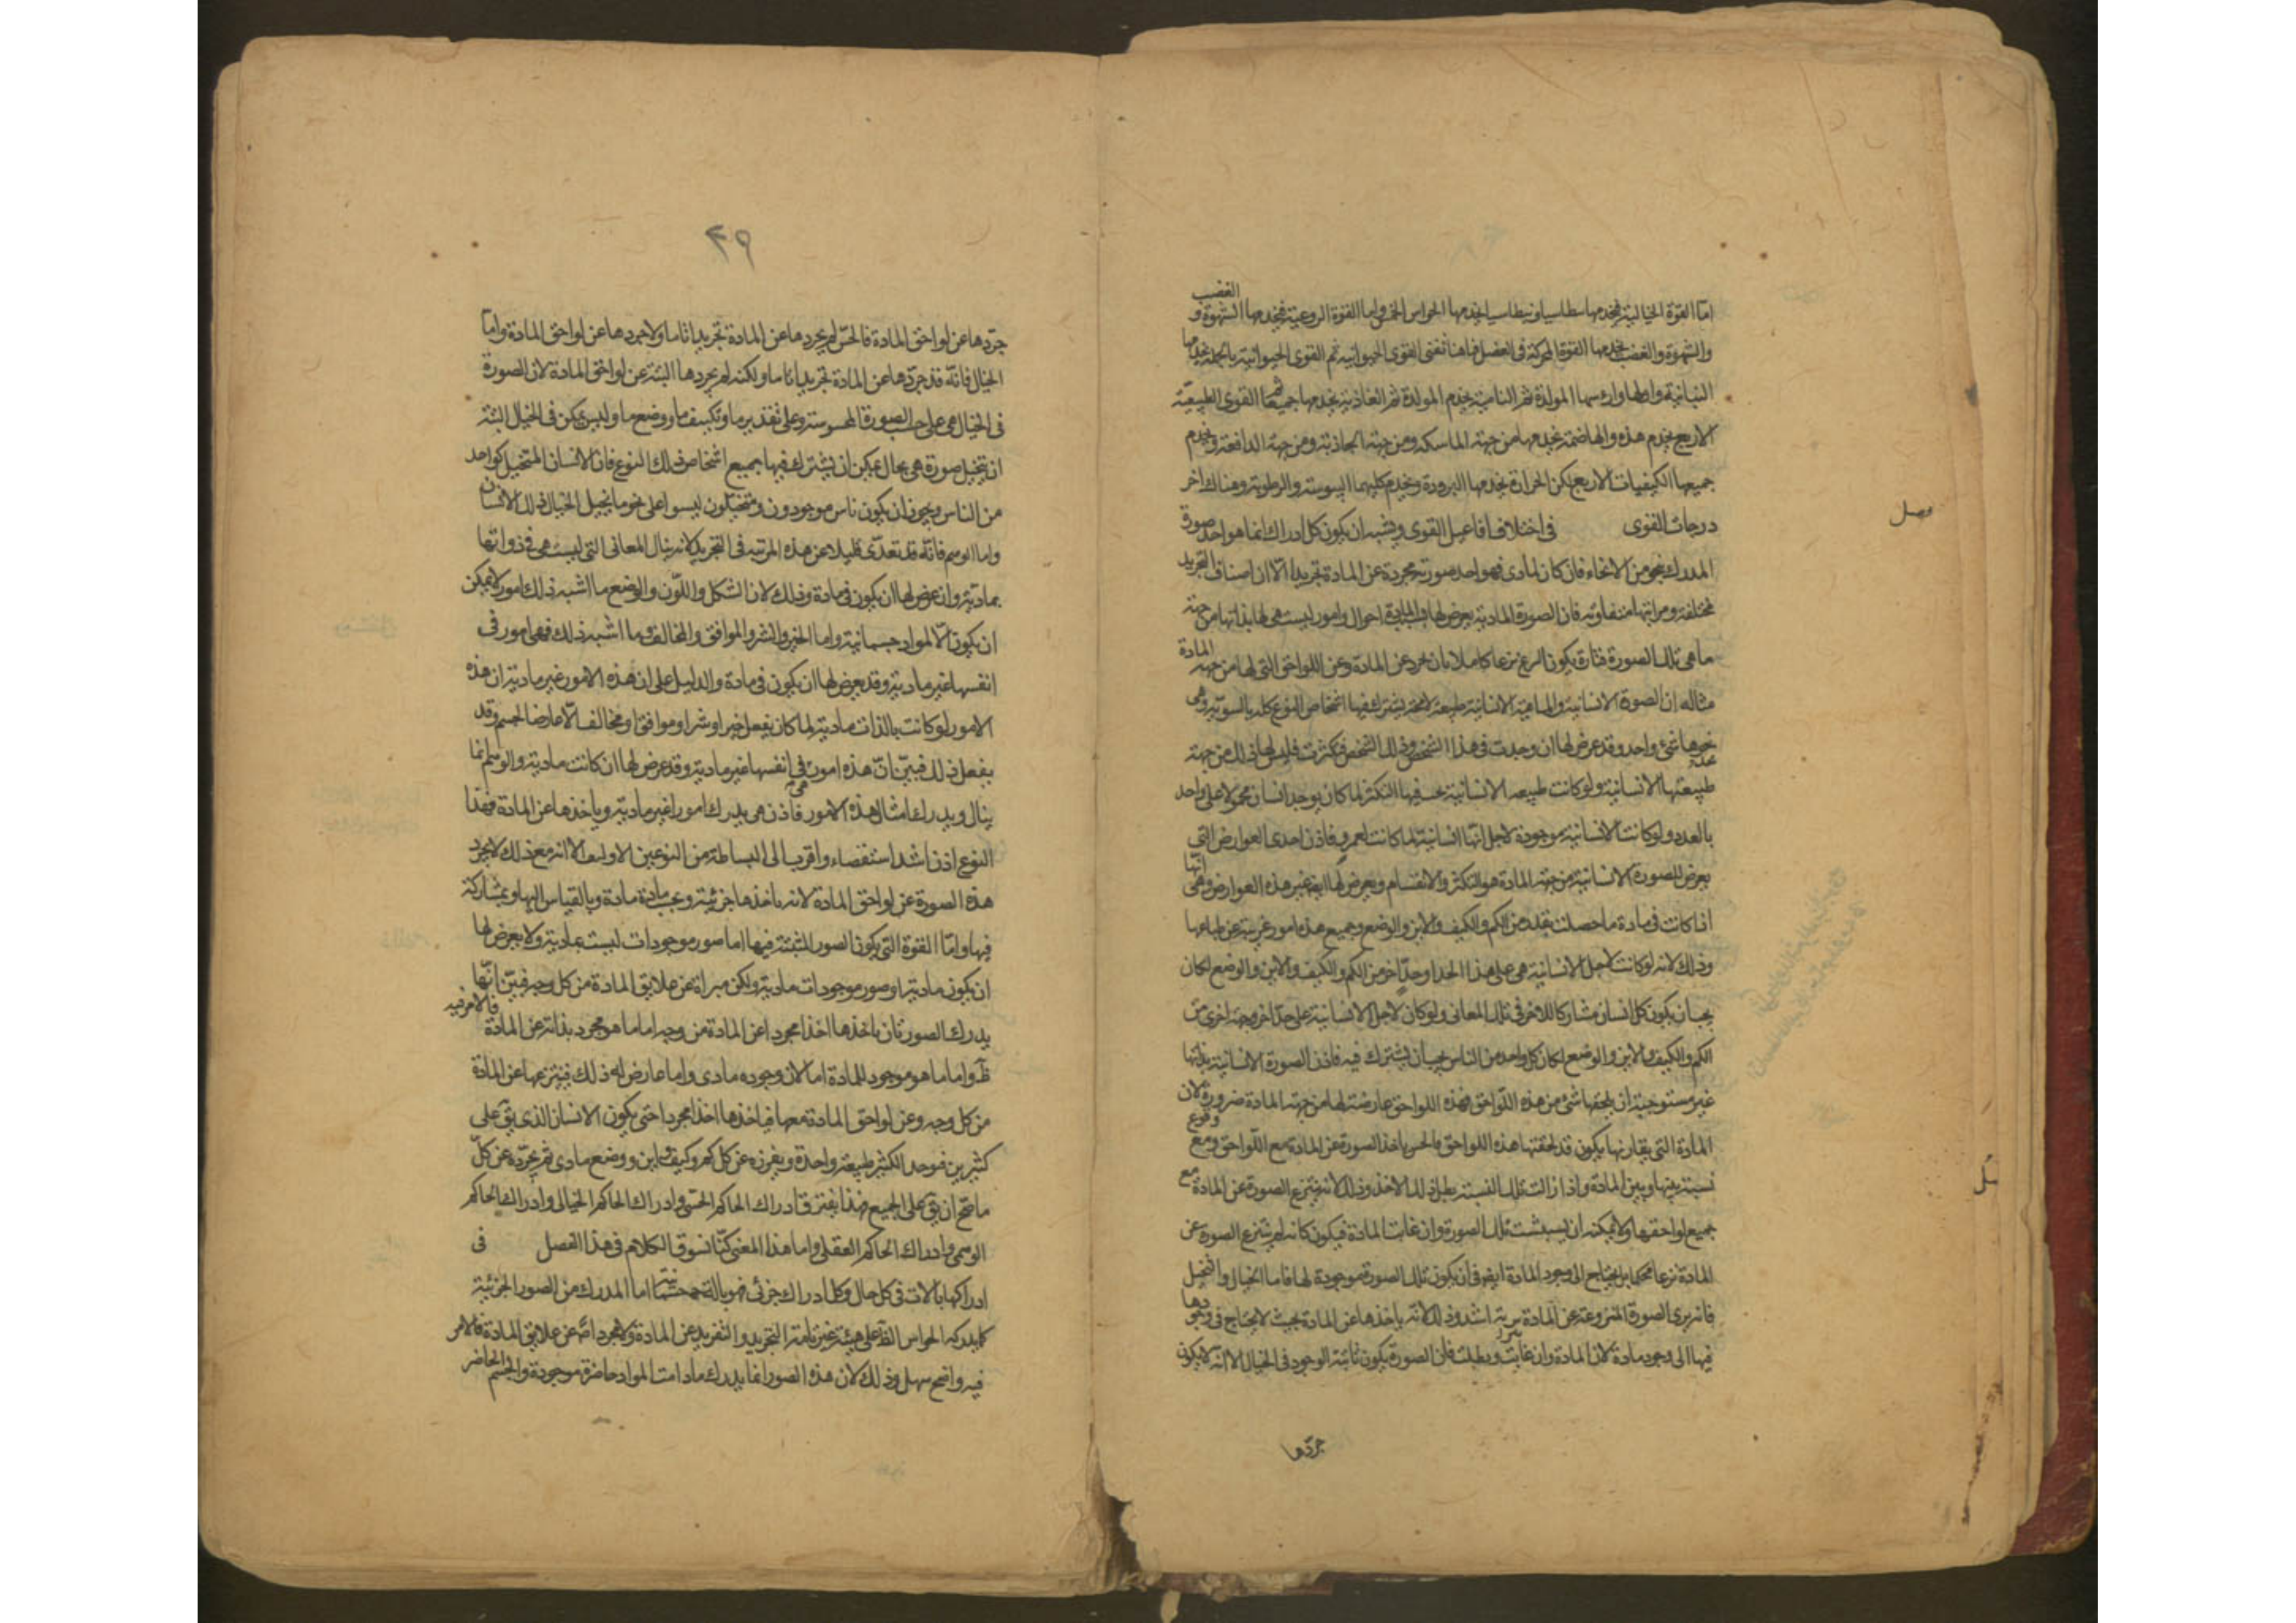 اما القوة الخيالية فيخدمها بنطاسيا وبنطاسيا يخدمها الحواس الخمس واما القوة النزوعية فيخدمها الشهوة و الغضب
والشهوة والغضب يخدمها القوة المحركة فى العضل فهاهنا تفنى القوى الحيوانية ثم القوى الحيوانية بالجملة يخدمها
النباتية واولها وارسها المولدة ثم النامية يخدم المولدة ثم الغاذية يخدمها جميعا ثم القوى الطبيعية
الاربع يخدم هذه والهاضمة يخدمها من جهة الماسكة ومن جهة الجاذبة ومن جهة الدافعة ويخدم
جميعها الكيفيات الاربع لكن الحرارة يخدمها البرودة ويخدم كليهما اليبوسة والرطوبة وهناك اخر
درجات القوى فى اختلاف افاعيل القوى ويشبه ان يكون كل ادراك انما هو اخذ صورة
فصل
المدرك بنحو من الانحاء فان كان لمادى فهو اخذ صورته مجردة عن المادة تجريدا ما الا ان اصناف التجريد
مختلفة ومراتبها متفاوته فان الصورة المادية يعرض لها بسبب المادة احوال وامور ليست هى لها بذاتها من جهة
ما هى تلك الصورة فتارة يكون النزع نزعا كاملا بان يجرد عن المادة وعن اللواحق التى لها من جهة المادة
مثاله ان الصورة الانسانية والماهية الانسانية طبيعة لامحة يشترك فيها اشخاص النوع كله بالسوية وهى
بحدها شئ واحد وقد عرض لها ان وجدت فى هذا الشخص وذلك الشخص فتكثرت فليس لها ذلك من جهة
طبيعتها الانسانية ولو كانت طبيعة الانسانية يجب فيها التكثر لما كان يوجد انسان محمولا على واحد
بالعدد ولو كانت الانسانية موجودة لاجل انها انسانية لما كانت لعمرو فاذن احدى العوارض التى
يعرض للصورة الانسانية من جهة المادة هو التكثر والانقسام ويعرض لها ايضا غير هذه العوارض وهى انها
اذا كانت فى مادة ما حصلت بقدر من الكم والكيف والاين والوضع وجميع هذه امور غريبة عن طباعها
وذلك لانه لو كانت لاجل الانسانية هى على هذا الحد او حد اخر من الكم والكيف والاين والوضع لكان
يجب ان يكون كل انسان مشاركا للاخر فى تلك المعانى ولو كان لاجل الانسانية على حد اخر وجهة اخرى من
الكم والكيف والاين والوضع لكان كل واحد من الناس يجب ان يشترك فيه فاذن الصورة الانسانية بذاتها
غير مستوجبة ان يلحقها شئ من هذه اللواحق فهذه اللواحق عارضة لها من جهة المادة ضرورة لان
المادة التى يقارنها يكون قد لحقتها هذه اللواحق فالحس ياخذ الصورة عن المادة مع اللواحق ومع وقوع
نسبة بينها وبين المادة واذا زالت تلك النسبة بطل ذلك الاخذ وذلك لانه ينتزع الصورة عن المادة مع
جميع لواحقها ولا يمكنه ان يستثبت تلك الصورة وان غابت المادة فيكون كانه لم ينتزع الصورة عن
المادة نزعا محكما بل يحتاج الى وجود المادة ايضا فى ان يكون تلك الصورة موجودة لها فاما الخيال والتخيل
فانه يبرى الصورة المنزوعة عن المادة تبرية اشد وذلك لانه ياخذها عن المادة بحيث لا يحتاج فى وجودها
فيها الى وجود مادة لان المادة وان غابت وبطلت فان الصورة يكون ثابتة الوجود فى الخيال الا انه لا يكون
جردها
٤٩
جردها عن لواحق المادة فالحس لم يجردها عن المادة تجريدا تاما ولا جردها عن لواحق المادة واما
الخيال فانه قد جردها عن المادة تجريدا تاما ولكنه لم يجردها البتة عن لواحق المادة لان الصورة
فى الخيال هى على حسب الصورة المحسوسة وعلى تقدير ما وتكييف ما ووضع ما وليس يمكن فى الخيال البتة
ان يتخيل صورة هى بحال يمكن ان يشترك فيها جميع اشخاص ذلك النوع فان الانسان المتخيل كواحد
من الناس ويجوز ان يكون ناس موجودون ومتخيلون ليسوا على نحو ما يخيل الخيال ذلك الانسان
واما الوهم فانه قد تعدى قليلا عن هذه المرتبة فى التجريد لانه ينال المعانى التى ليست هى فى ذواتها
بمادية وان عرض لها ان يكون فى مادة وذلك لان الشكل واللون والوضع ما اشبه ذلك امور لا يمكن
ان يكون الا لمواد جسمانية واما الخير والشر والموافق والمخالف وما اشبه ذلك فهى امور فى
انفسها غير مادية وقد يعرض لها ان يكون فى مادة والدليل على ان هذه الامور غير مادية ان هذه
الامور لو كانت بالذات مادية لما كان يعقل خير او شر او موافق او مخالف الا عارضا لجسم وقد
يعقل ذلك فبين ان هذه امور هى فى انفسها غير مادية وقد عرض لها ان كانت مادية والوهم انما
ينال ويدرك امثال هذه الامور فاذن هى يدرك امورا غير مادية وياخذها عن المادة فهذا
النوع اذن اشد استقصاء واقرب الى البساطة من النوعين الاولين الا انه مع ذلك لا يجرد
هذه الصورة عن لواحق المادة لانه ياخذها جزئية وبحسب مادة مادة وبالقياس اليها وبمشاركة
فيها واما القوة التى يكون الصور المثبتة فيها اما صور موجودات ليست بمادية ولا يعرض لها
ان يكون مادية او صور موجودات مادية ولكن مبراة عن علايق المادة من كل وجه فبين انها
يدرك الصور بان ياخذها اخذا مجردا عن المادة من وجه اما ما هو مجرد بذاته عن المادة فالامر فيه
ظ واما ما هو موجود للمادة اما لان وجوده مادى واما عارض له ذلك فينزعها عن المادة
من كل وجه وعن لواحق المادة معها فياخذها اخذا مجردا حتى يكون الانسان الذى يق على
كثيرين فيوحد الكثير طبيعة واحدة ويفرزه عن كل كم وكيف واين ووضع مادى ثم يجرده عن كل
ما صح ان يق على الجميع فهذا يفترق ادراك الحاكم الحسى وادراك الحاكم الخيالى وادراك الحاكم
الوهمى وادراك الحاكم العقلى واما هذا المعنى كنا نسوق الكلام فى هذا الفصل فى
ادراكها بالات فى كل حال وكل ادراك جزئى فهو بالة جسمانية اما المدرك من الصور الجزئية
كما يدركه الحواس الظ على هيئة غير تامة التجريد والتفريد عن المادة ولا مجردا عن علايق المادة فالامر
فيه واضح سهل وذلك لان هذه الصور انما يدرك ما دامت المواد حاضرة موجودة والجسم الحاضر